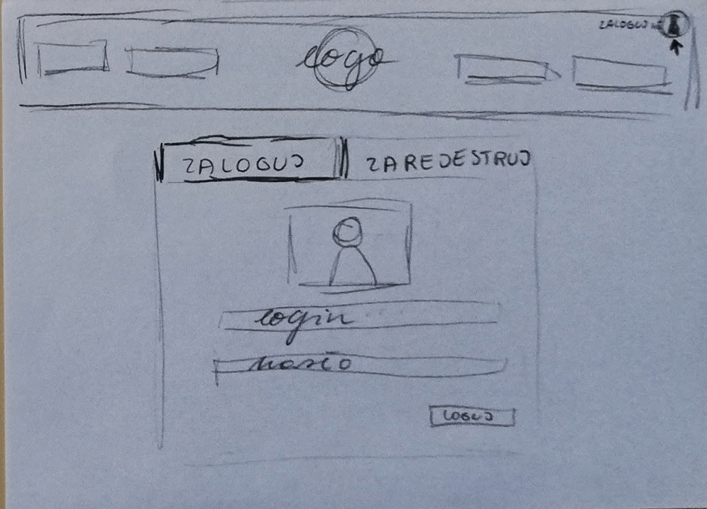 ZALOGUJ
logo
ZALOGUJ
ZAREJESTRUJ
login
hasło
LOGUJ